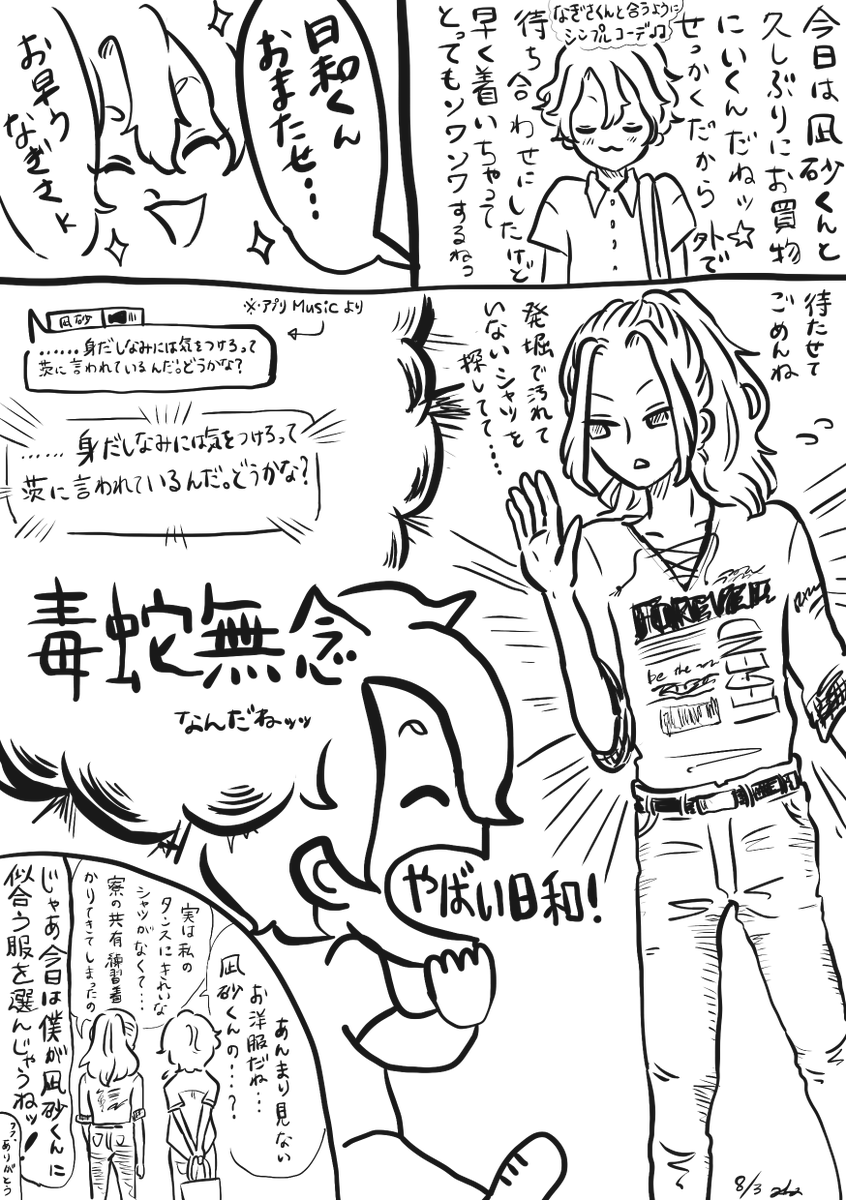 今日は凪砂くんと
久しぶりにお買物
にいくんだねッ☆
せっかくだから 外で
待ち合わせにしたけど
早く着いちゃって
とってもソワソワするねっ
なぎさくんと合うように
シンプルコーデ♫
日和くん
おまたせ…
お早う
なぎさ
待たせて
ごめんね
発掘で汚れて
いないシャツを
探してて……
FOREVER
be the
※アプリMusicより
凪砂
……身だしなみには気をつけろって
茨に言われているんだ。どうかな?
……身だしなみには気をつけろって
茨に言われているんだ。どうかな?
毒蛇無念
なんだねッッ
やばい日和!
あんまり見ない
お洋服だね…
凪砂くんの…?
実は私の
タンスにきれいな
シャツがなくて…
寮の共有練習着
かりてきてしまったの
じゃあ今日は僕が凪砂くんに
似合う服を選んじゃうねッ!
フフ、ありがとう
8/3